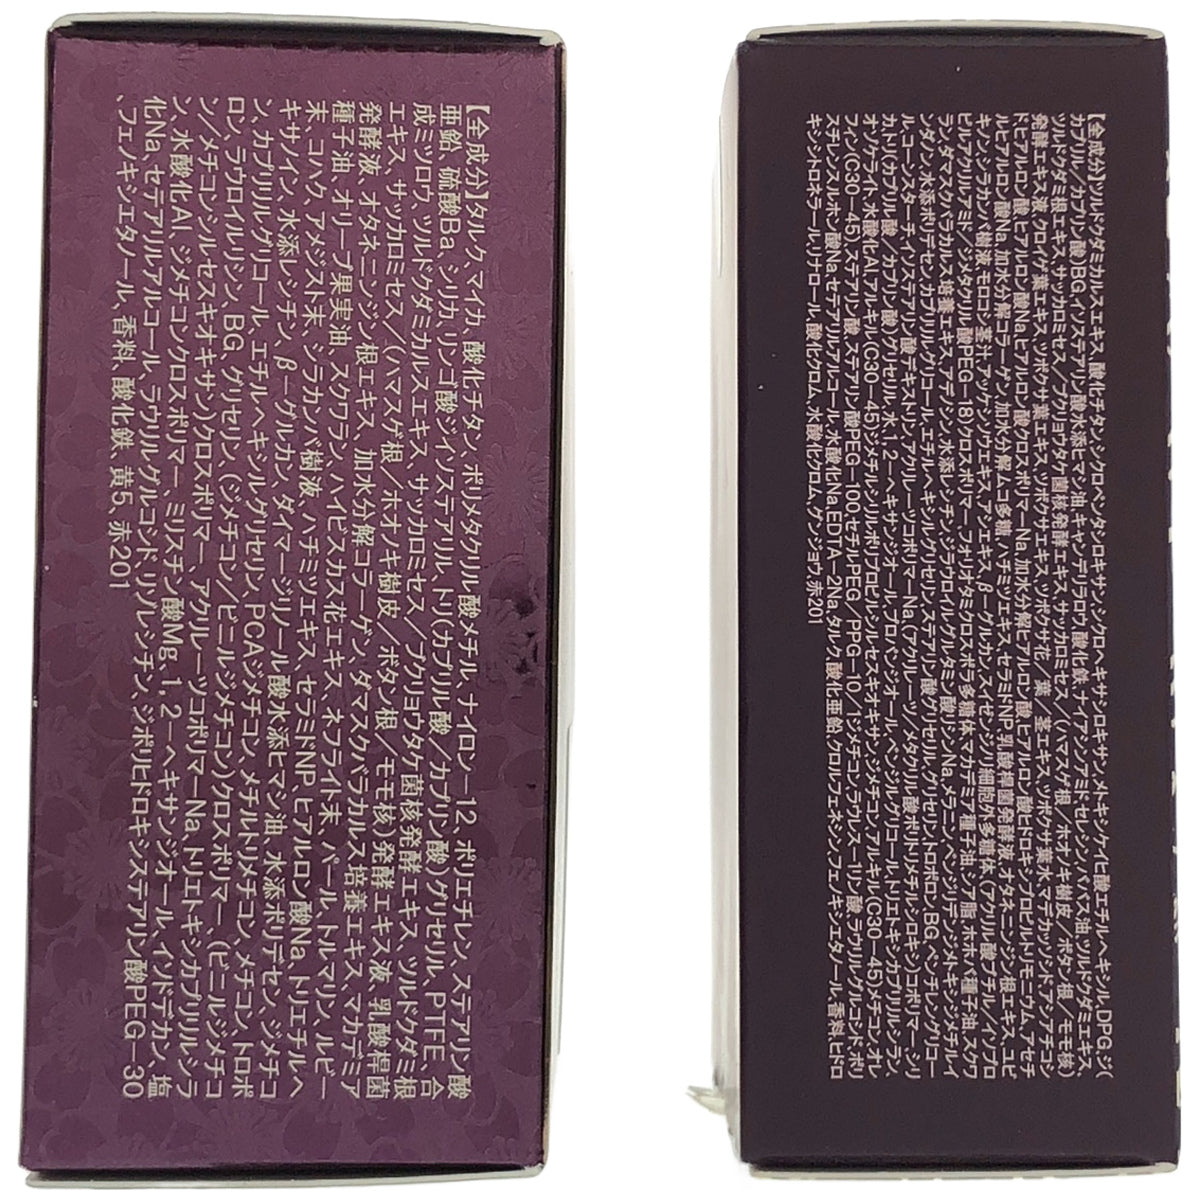 【全成分】タルク、マイカ、酸化チタン、ポリメタクリル酸メチル、ナイロン-12、ポリエチレン、ステアリン酸
亜鉛、硫酸Ba、シリカ、リンゴ酸ジイソステアリル、トリ(カプリル酸/カプリン酸)グリセリル、PTFE、合
成ミツロウ、ツルドクダミカルスエキス、サッカロミセス/ブクリョウタケ菌核発酵エキス、ツルドクダミ根
エキス、サッカロミセス/(ハマスゲ根/ホオノキ樹皮/ボタン根/モモ核)発酵エキス液、乳酸桿菌
発酵液、オタネニンジン根エキス、加水分解コラーゲン、ダマスクバラカルス培養エキス、マカデミア
種子油、オリーブ果実油、スクワラン、ハイビスカス花エキス、ネフライト末、パール、トルマリン、ルビー
末、コハク、アメジスト末、シラカンバ樹液、ハチミツエキス、セラミドNP、ヒアルロン酸Na、トリエチルヘ
キサノイン、水添レシチン、β-グルカン、ダイマージリノール酸水添ヒマシ油、水添ポリデセン、ジメチコ
ン、カプリリルグリコール、エチルヘキシルグリセリン、PCAジメチコン、メチルトリメチコン、メチコン、トロポ
ロン、ラウロイルリシン、BG、グリセリン、(ジメチコン/ビニルジメチコン)クロスポリマー、(ビニルジメチコ
ン/メチコンシルセスキオキサン)クロスポリマー、アクリレーツコポリマーNa、トリエトキシカプリリルシラ
ン、水酸化Al、ジメチコンクロスポリマー、ミリスチン酸Mg、1,2-ヘキサンジオール、イソドデカン、塩
化Na、セテアリルアルコール、ラウリルグルコシド、リゾレシチン、ジポリヒドロキシステアリン酸PEG-30
、フェノキシエタノール、香料、酸化鉄、黄5、赤201
【全成分】ツルドクダミカルスエキス,酸化チタン,シクロペンタシロキサン,シクロヘキサシロキサン,メトキシケイヒ酸エチルヘキシル,DPG,ジ(
カプリル/カプリン酸)BG,イソステアリン酸水添ヒマシ油,キャンデリラロウ,酸化鉄,ナイアシンアミド,セレシン,ババス油,ツルドクダミエキス,
ツルドクダミ根エキス,サッカロミセス/ブクリョウタケ菌核発酵エキス,サッカロミセス/(ハマスゲ根/ホオノキ樹皮/ボタン根/モモ核)
発酵エキス液,クロイゲ葉エキス,ツボクサ葉エキス,ツボクサエキス,ツボクサ花/葉/茎エキス,ツボクサ葉水,マデカッソシド,アシアチコシ
ド,ヒアルロン酸,ヒアルロン酸Na,ヒアルロン酸クロスポリマーNa,加水分解ヒアルロン酸,ヒアルロン酸ヒドロキシプロピルトリモニウム,アセチ
ルヒアルロン酸Na,加水分解コラーゲン,加水分解ムコ多糖,ハチミツエキス,セラミドNP,乳酸桿菌発酵液,オタネニンジン根エキス,ユビ
キノン,シラカンバ樹液,モロコシ茎汁,アッケシソウエキス,アシエキス,β-グルカン,スイゼンジノリ細胞外多糖体,(アクリル酸ブチル/イソプロ
ピルアクリルアミド/ジメタクリル酸PEG-18)クロスポリマー,フィオダミクロスポラ多糖体,マカデミア種子油,シア脂,ホホバ種子油,スクワ
ラン,ダマスクバラカルス培養エキス,アデノシン,水添レシチン,ジラウロイルグルタミン酸リシンNa,メラニン,ベンジリデンジメトキシジメチルイ
ンダノン,水添ポリデセン,カプリリルグリコール,エチルヘキシルグリセリン,ステアリン酸グリセリル,グリセリン,トロポロン,BG,ペンチレングリコー
ル,コーンスターチ,イソステアリン酸デキストリン,アクリレーツコポリマーNa,(アクリレーツ/メタクリル酸ポリトリメチルシロキシ)コポリマー,ジリ
カ,トリ(カプリル酸/カプリン酸)グリセリル,水,1,2-ヘキサンジオール,プロパンジオール,ベンジルグリコール,トリエトキシカプリリルシラン,
オゾケライト,水酸化Al,アルキル(C30-45)ジメチルシリルポリプロピルシルセスキオキサン,ジメチコン,アルキル(C30-45)メチコン,オレ
フィン(C30-45),ステアリン酸,ステアリン酸PEG-100,セチルPEG/PPG-10/1ジメチコン,ラウレス-1リン酸,ラウリルグルコシド,ポリ
スチレンスルホン酸Na,セテアリルアルコール,水酸化Na,EDTA-2Na,タルク,酸化亜鉛,クロルフェネシン,フェノキシエタノール,香料,ヒドロ
キシシトロネラール,リナロール,酸化クロム,水酸化クロム,グンジョウ,赤201